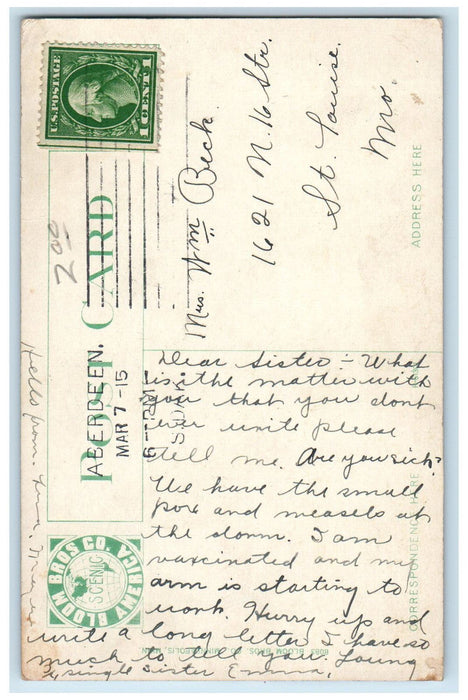 U.S. POSTAGE
1 CENT 1
POST CARD
2 00
ABERDEEN.
MAR 7-15
6-PM
S.DAK.
Mrs. Wm Beck
1621 N. 16 Str.
St. Louise.
Mo.
ADDRESS HERE
CORRESPONDENCE HERE
BLOOM BROS CO. AMERICA
SCENIC
6083 BLOOM BROS. CO MINNEAPOLIS, MINN.
Dear Sister :- What
is the matter with
you that you dont
ever write please
tell me. Are you sick?
We have the small
pox and measels at
the dorm. I am
vaxcinated and my
arm is starting to
work. Hurry up and
write a long letter I have so
much to tell you. Young
& single Sister Emma,
Hello from